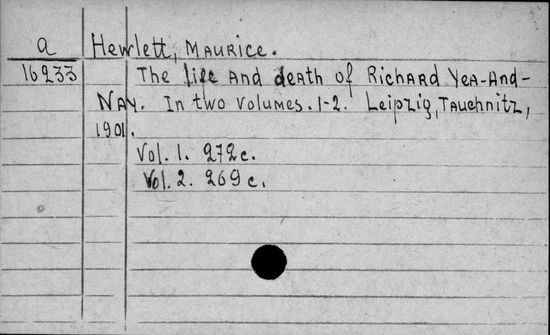 a Hewlett, Maurice.
16233 The life and death of Richard Yea-and-
Nay. In two volumes. 1-2. Leipzig, Tauchnitz,
1901.
Vol. 1. 272 c.
Vol. 2. 269 c.